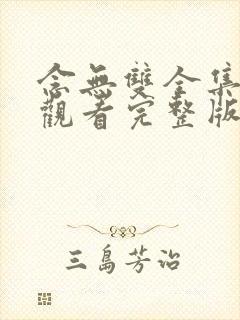 念無雙全集
觀看完整版
三島芳治